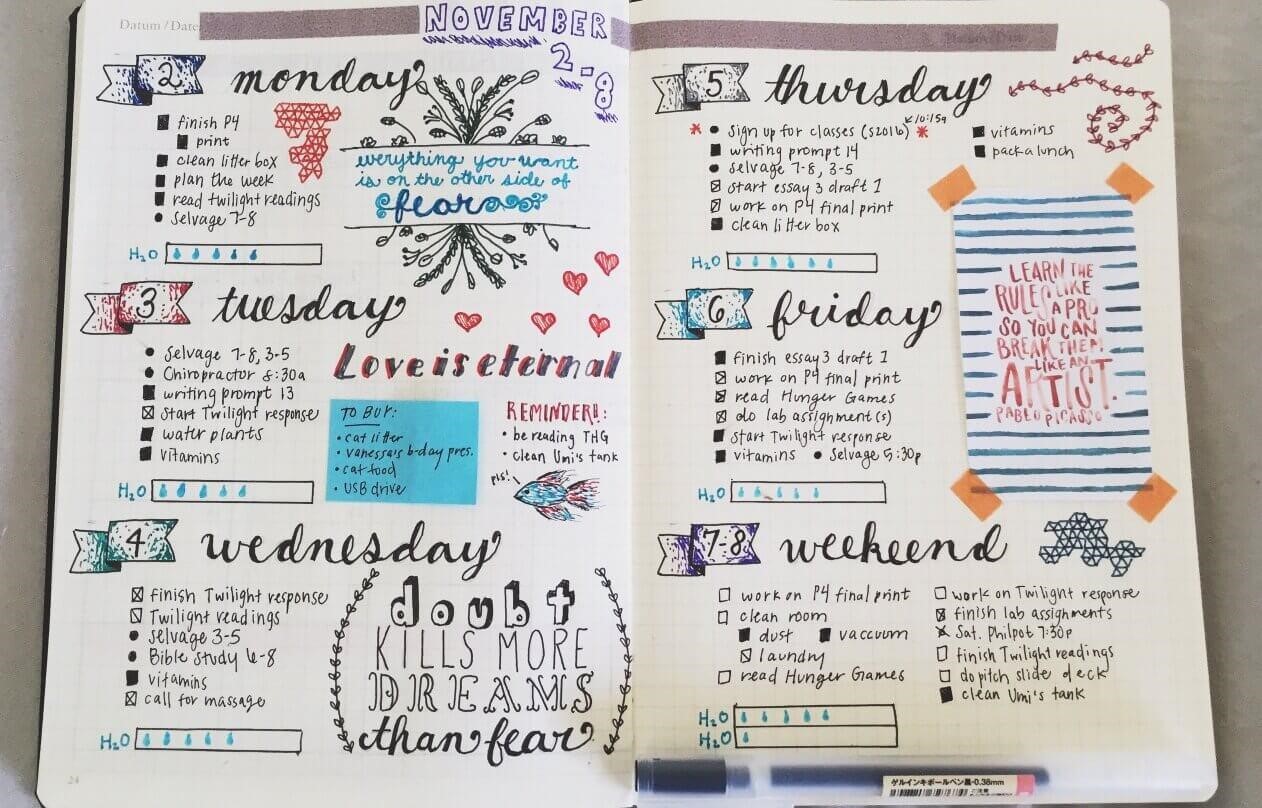 Datum / Date:
NOVEMBER
2-8
2 monday
finish P4
print
clean litter box
plan the week
read twilight readings
Selvage 7-8
H₂O
everything you want
is on the other side of
fear
3 tuesday
Selvage 7-8, 3-5
Chiropractor 8:30a
writing prompt 13
Start Twilight response
water plants
vitamins
H₂O
Love is eternal
TO BUY:
• cat litter
• vanessa's b-day pres.
• cat food
• USB drive
REMINDER!!:
• be reading THG
• clean Umi's tank
pls!
4 wednesday
finish Twilight response
Twilight readings
Selvage 3-5
Bible Study 6-8
vitamins
call for massage
H₂O
doubt
KILLS MORE
DREAMS
than fear.
24
5 thursday
10:15a
* Sign up for classes (S2016) *
writing prompt 14
Selvage 7-8, 3-5
start essay 3 draft 1
work on P4 final print
clean litter box
vitamins
pack a lunch
H₂O
6 friday
finish essay 3 draft 1
work on P4 final print
read Hunger Games
do lab assignment(s)
start Twilight response
vitamins • Selvage 5:30p
H₂O
LEARN THE
RULES LIKE
A PRO
SO YOU CAN
BREAK THEM
LIKE AN
ARTIST.
PABLO PICASSO
7-8 weekeend
work on P4 final print
clean room
dust vaccuum
laundry
read Hunger Games
work on Twilight response
finish lab assignments
Sat. Philpot 7:30p
finish Twilight readings
do pitch slide deck
clean Umi's tank
H₂O
H₂O
ゲルインキボールペン黒・0.38mm